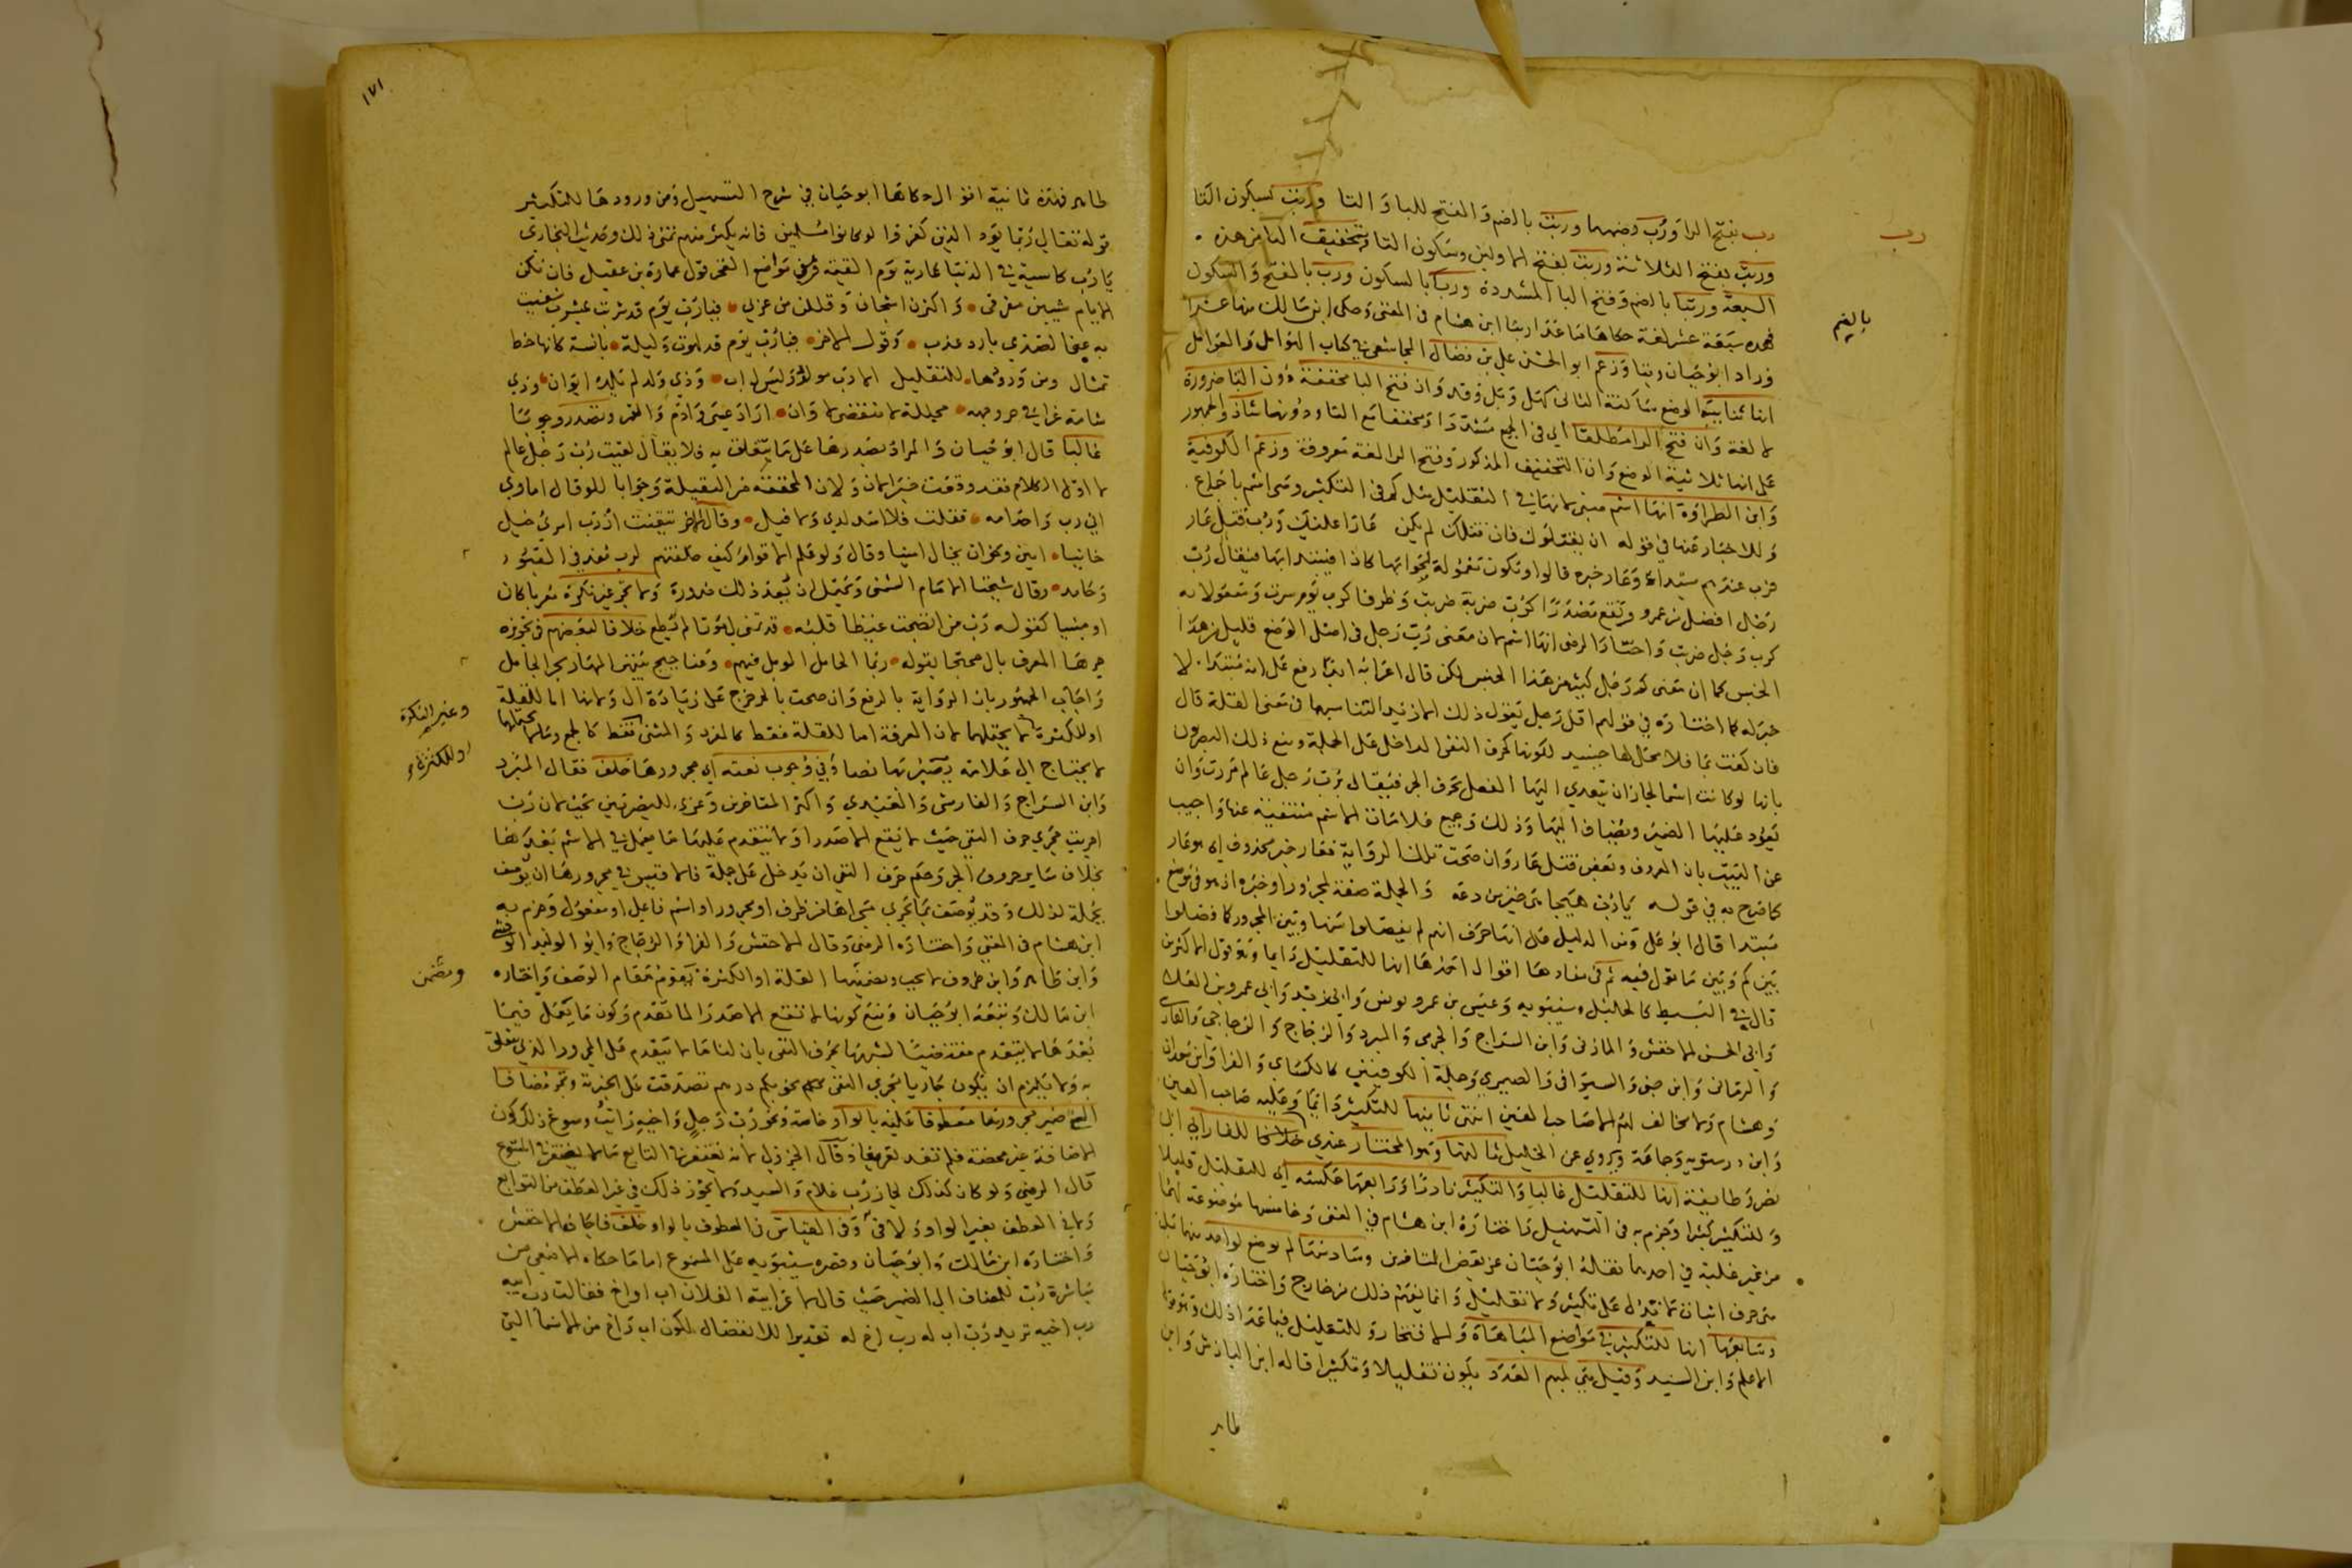 رب
رب بفتح الرا ورب بضمها وربت بالضم والفتح للبا والتا وربت بسكون التا
وربت بفتح الثلاثة وربت بفتح الاولين وسكون التا وبتخفيف البا من هذه
السبعة وربتا بالضم وفتح البا المشددة ورب بالسكون ورب بالفتح والسكون
بالضم
فهذه سبعة عشر لغة حكاها ما عدا ربتا ابن هشام في المغنى وحكى ابن مالك منها عشرا
وزاد ابو حيان ربتا وزعم ابو الحسن علي بن فضال المجاشعي في كتاب الهوامل والعوامل
انها ثنائية الوضع ساكنة الثانى كهل وبل وقد وان فتح البا مخففة دون التا ضرورة
لا لغة وان فتح الرا مطلقا اي في الجميع مشددا او مخففا مع التا ودونها شاذ والجمهور
على انها ثلاثية الوضع وان التخفيف المذكور وفتح الرا لغة معروفة وزعم الكوفية
وابن الطراوة انها اسم مبنى لانها في التقليل مثل كم فى التكثير وهي اسم باجماع
وللاخبار عنها في قوله ان يقتلوك فان قتلك لم يكن عارا عليك ورب قتل عار
فرب عندهم مبتداء وعار خبره قالوا وتكون معمولة لجوابها كاذا فيبتدا بها فيقال رب
رجل افضل من عمرو وتقع مصدرا كرب ضربة ضربت وظرفا كرب يوم سرت ومفعولا به
كرب رجل ضربت واختار الرضى انها اسم لان معنى رب رجل في اصل الوضع قليل من هذا
الجنس كما ان معنى كم رجل كثير من هذا الجنس لكن قال اعرابه ابدا رفع على انه مبتدا لا
خبر له كما اختاره في قولهم اقل رجل يقول ذلك الا زيد لتناسبهما في معنى القلة قال
فان كفت بما فلا محل لها حينئذ لكونها كحرف النفى الداخل على الجملة ومنع ذلك البصريون
بانها لو كانت اسما لجاز ان يتعدي اليها الفعل بحرف الجر فيقال برب رجل عالم مررت وان
يعود عليها الضمير ويضاف اليها وذلك وجميع علامات الاسم منتفية عنها واجيب
عن البيت بان المعروف وبعض قتل عار وان صحت تلك الرواية فعار خبر محذوف اي هو عار
كما صرح به في قوله يا رب هيجا هي خير من دعه والجملة صفة لمجرور او خبره اذ هو في موضع
مبتدا قال ابو علي ومن الدليل على انها حرف انهم لم يفصلوا بينها وبين المجرور كما فصلوا
بين كم وبين ما تعمل فيه ثم في مفادها اقوال احدها انها للتقليل دايما وهو قول الاكثرين
قال في البسيط كالخليل وسيبويه وعيسى بن عمر ويونس وابي زيد وابي عمرو بن العلا
وابى الحسن الاخفش والمازنى وابن السراج والجرمى والمبرد والزجاج والزجاجي والفارسي
والرمانى وابن جنى والسيرافى والصيمري وجملة الكوفيين كالكساي والفرا وابن سعدان
وهشام ولا مخالف لهم الا صاحب العين انتهى ثانيها للتكثير دايما وعليه صاحب العين
وابن درستويه وجماعة وروي عن الخليل ثالثها وهو المختار عندي وفاقا للفارابي ابي
نصر وطايفة انها للتقليل غالبا والتكثير نادرا ورابعها عكسه اي للتقليل قليلا
وللتكثير كثيرا وجزم به في التسهيل واختاره ابن هشام في المغنى وخامسها موضوعة لهما
من غير غلبة في احدهما نقله ابو حيان عن بعض المتاخرين وسادسها لم توضع لواحد منهما بل
هى حرف اثبات لا يدل على تكثير ولا تقليل وانما يفهم ذلك من خارج واختاره ابو حيان
وسابعها انها للتكثير في مواضع المباهاة والافتخار وللتقليل فيما عدا ذلك وهو قول
الاعلم وابن السيد وقيل هي لمبهم العدد يكون تقليلا وتكثيرا قاله ابن الباذش وابن
طاهر
١٧١
طاهر فهذه ثمانية اقوال حكاها ابو حيان في شرح التسهيل ومن ورودها للتكثير
قوله تعالى ربما يود الذين كفروا لو كانوا مسلمين فانه يكثر منهم تمنى ذلك وحديث البخاري
يا رب كاسية في الدنيا عارية يوم القيمة وفي مواضع الفخر قول عمارة بن عقيل فان تكن
الايام شيبن مفرقى واكثرن اشجانى وقللن من غربي فيا رب يوم قد شربت بمشرب شفيت
به عنى الصدي بارد عذب وقول الاخر فيا رب يوم قد لهوت وليلة بانسة كانها خط
تمثال ومن ورودها للتقليل الا رب مولود وليس له اب وذي ولد لم يلده ابوان وذي
شامة غرا في حر وجهه مجللة لا تنقضى لاوان اراد عيسى وادم والقمر وتصدر وجوبا
غالبا قال ابو حيان والمراد تصدرها على ما تتعلق به فلا يقال لقيت رب رجل عالم
لا اول الكلام فقد وقعت خبرا لان ولان المخففة من الثقيلة وجوابا للو قال اماوي
اني رب واحد امه قتلت فلا اسد لدي ولا قيل وقال الاخر تيقنت ان رب امرئ خيل
خائنا امين وخوان يخال امينا وقال ولو علم الاقوام كيف خلفتهم لرب مفد في القبور
وحامد وقال شيخنا الامام الشمنى ويحتمل ان يعد ذلك ضرورة ولا تجر غير نكرة معربا كان
او مبنيا كقوله رب من انضجت غيظا قلبه قد تمنى لي موتا لم يطع خلافا لبعضهم في تجويزه
جرها المعرف بال محتجا بقوله ربما الجامل الموبل فيهم وعناجيج بينهن المهار بجر الجامل
واجاب الجمهور بان الرواية بالرفع وان صحت بالجر خرج على زيادة ال ولانها اما للقلة
وغير النكرة
او للكثرة
او للكثرة لا يحتملهما لان المعرفة اما للقلة فقط كالمفرد والمثنى فقط كالجمع وما يحتملهما
لا يحتاج الى علامة يصير بها نصا وفي وجوب نعته اي مجرورها خلف فقال المبرد
وابن السراج والفارسى والعبدي واكثر المتاخرين وعزي للبصريين يجب لان رب
اجريت مجري حرف النفى حيث لا تقع الا صدرا ولا يتقدم عليها ما يعمل في الاسم بعدها
بخلاف ساير حروف الجر وحكم حرف النفى ان يدخل على جملة فالاقيس في مجرورها ان يوصف
بجملة لذلك وقد يوصف بما يجري مجراها من ظرف او مجرور او اسم فاعل او مفعول وجزم به
ابن هشام في المغنى واختاره الرضى وقال الاخفش والفرا والزجاج وابو الوليد الوقشي
وابن طاهر وابن خروف لا يجب وتضمنها القلة او الكثرة يقوم مقام الوصف واختاره
وتضمن
ابن مالك وتبعه ابو حيان ومنع كونها لا تقع الا صدرا لما تقدم وكون ما يعمل فيما
بعدها لا يتقدم مقتضيا لشبهها بحرف النفى بان لنا ما لا يتقدم على المجرور الذي يتعلق
به ولا يلزم ان يكون جاريا مجري النفى نحو بكم درهم تصدقت على الخبر به وتجر مضافا
الى ضمير مجرورها معطوفا عليه بالواو خاصة نحو رب رجل واخيه رايت وسوغ ذلك كون
الاضافة غير محضة فلم تفد تعريفا وقال الجزولى لانه يغتفر في التابع ما لا يغتفر في المتبوع
قال الرضى ولو كان كذلك لجاز رب غلام والسيد ولا يجوز ذلك في غير العطف من التوابع
ولا في العطف بغير الواو ولا في وفي القياس في المعطوف بالواو خلف فاجازه الاخفش
واختاره ابن مالك وابو حيان وقصره سيبويه على المسموع اما ما حكاه الاصمعى من
مباشرة رب للمضاف الى الضمير حيث قال لاعرابية الفلان اب او اخ فقالت رب ابيه
رب اخيه تريد رب اب له رب اخ له تقديرا للانفصال لكون اب واخ من الاسما التي